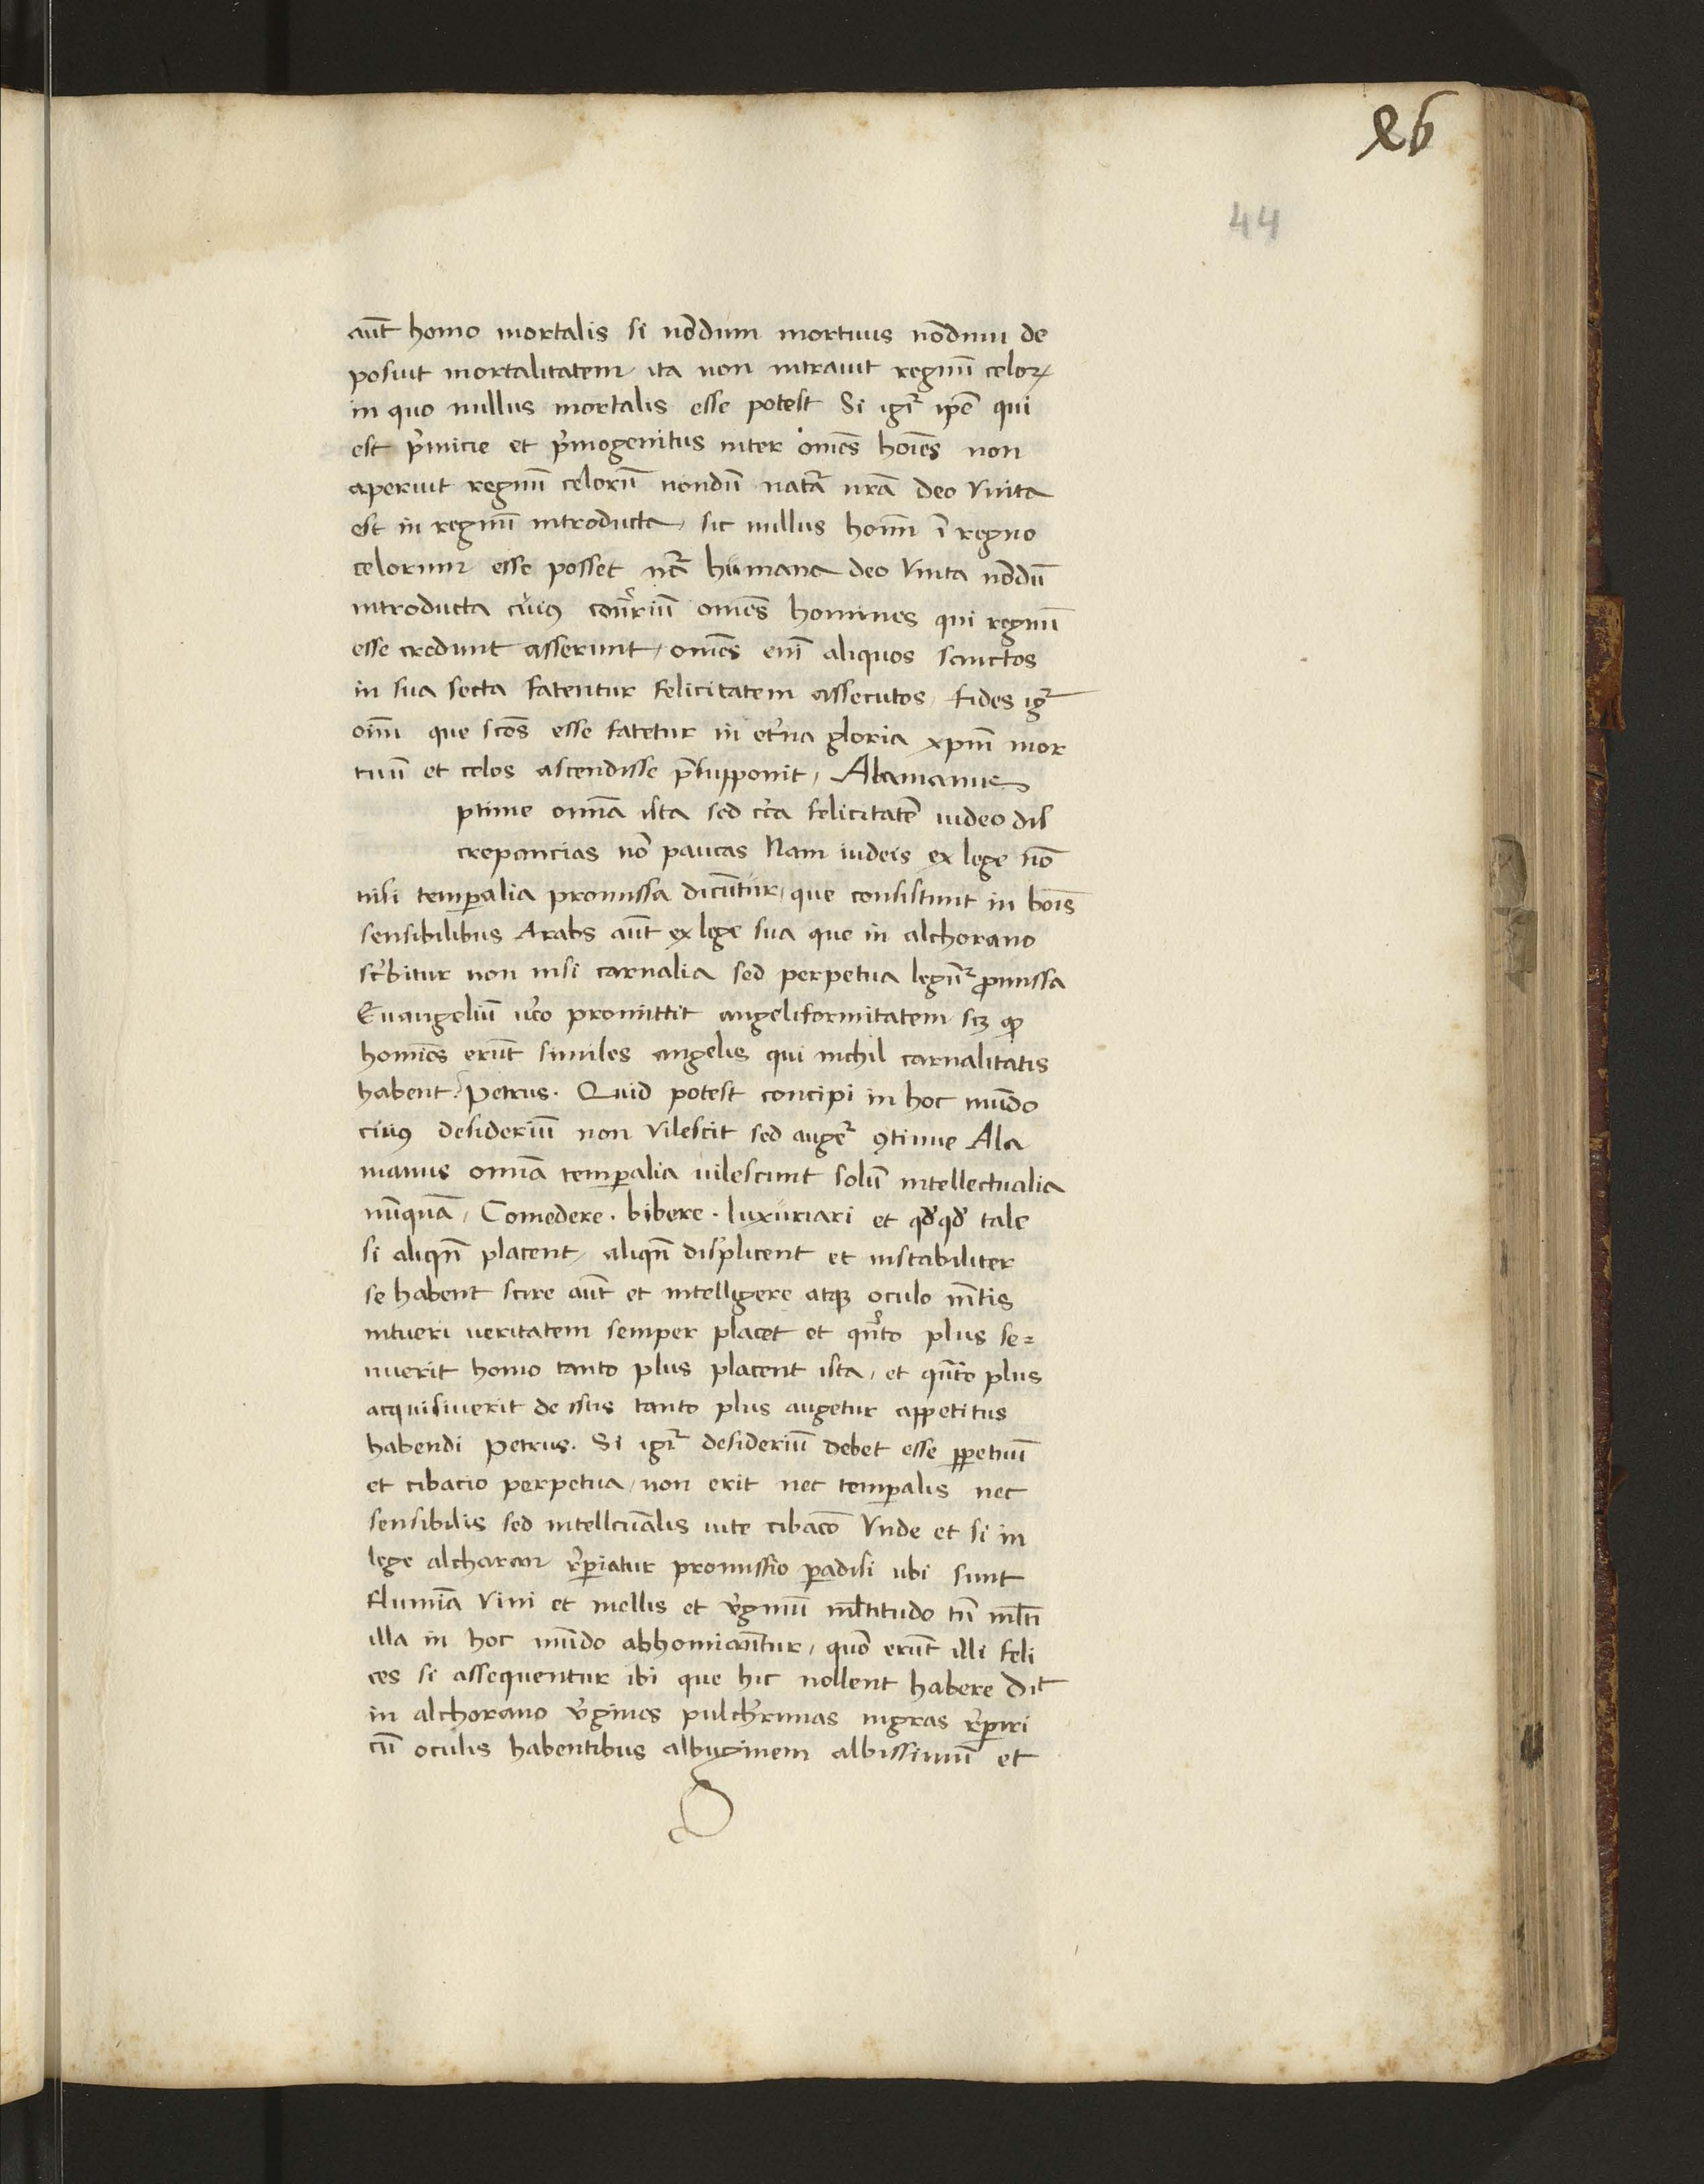 86
44
aūt homo mortalis si nōdum mortuus nōdum de
posuit mortalitatem ita non intrauit regnū celoꝝ
in quo nullus mortalis esse potest Si igr̃ ipē qui
est p̾micie et p̾mogenitus inter om̄es hoīes non
aperuit regnū celorū nondū natr̄a nrā deo vnita
est in regnū introducta, sic nullus homī ī regno
celorum esse posset nr̄a humana deo vnita nōdū
introducta cuiꝰ contr̾riū om̄es homines qui regnū
esse credunt asserunt, om̄es enī aliquos sanctos
in sua secta fatentur felicitatem assecutos, fides igr̃
oīm que scōs esse fatetur in et̾na gloria xp̄m mor
tuū et celos ascendisse p̄supponit, Alamanus
ptime om̄ia ista sed cc̾a felicitatē uideo dis
crepancias nō paucas Nam iudeis ex lege nō
nisi temꝑalia promissa dicūtur, que consistunt in boīs
sensibilibus Arabs aūt ex lege sua que in alchorano
sc̾bitur non nisi carnalia sed perpetua legūr̃ ꝓmissa
Euangeliū u̾o promittit angeliformitatem scꝫ ꝙ
homīes erūt similes angelis qui nichil carnalitatis
habent. Petrus. Quid potest concipi in hoc mūdo
cuiꝰ desideriū non vilescit sed augēr̃ ꝯtinue Ala
manus om̄ia temꝑalia uilescunt solū intellectualia
nūquā, Comedere. bibere. luxuriari et qd̾qd̾ tale
si aliqn̄ placent, aliqn̄ displicent et instabiliter
se habent scire aūt et intelligere atqꝫ oculo mētis
intueri ueritatem semper placet et qn̾to plus se=
nuerit homo tanto plus placent ista, et qūto plus
acquisiuerit de istis tanto plus augetur appetitus
habendi Petrus. Si igr̃ desideriū debet esse ꝑpetuū
et cibacio perpetua, non erit nec temꝑalis nec
sensibilis sed intellcuālis uite cibacō Vnde et si in
lege alcharan r̾ꝑiatur promissio ꝑadisi ubi sunt
flumīa vini et mellis et v̾ginū ml̄titudo tn̄ ml̄ti
illa in hoc mūdo abhomiāntur, quō erūt illi feli
ces si assequentur ibi que hic nollent habere Dīt
in alchorano v̾gines pulch̾rimas nigras r̾ꝑiri
cū oculis habentibus albuginem albissimū et